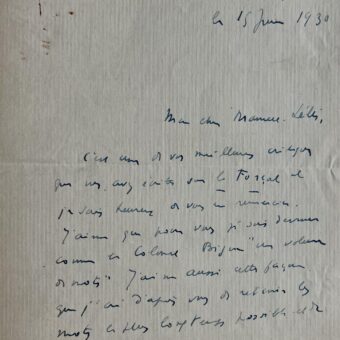 le 15 Juin 1930
Mon cher
C'est une de vos meilleures critiques
que vous avez écrites sur le Forçat et
je suis heureux de vous en remercier.
J'aime que pour vous je sois devenu
comme ce Colonel un voleur
de mots". J'aime aussi cette façon
que j'ai d'après vous de retenir les
mots le plus longtemps possible et de